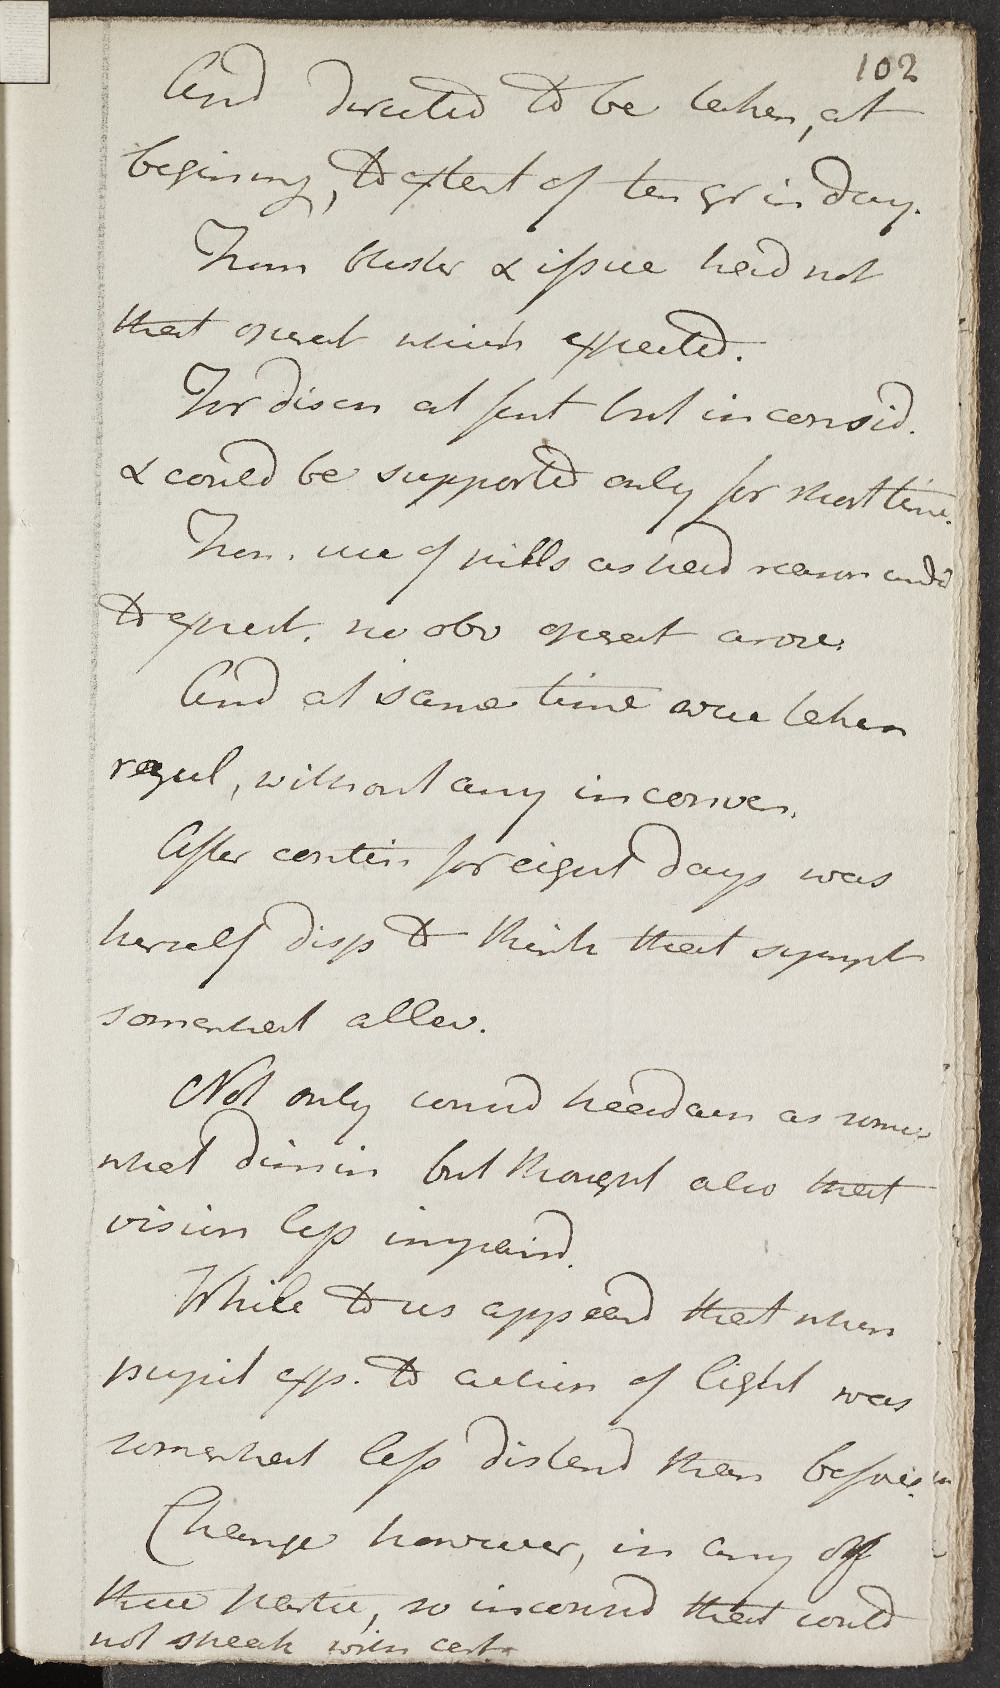 102
And directed to be taken, at
begining, to extent of ten gr in day.
From blister & issue had not
that operat which expected.
For discn at first but inconsid.
& could be supported only for short time.
From use of pills as had reason
to expect. no obv operat arose.
And at same time were taken
regul, without any inconven.
After contin for eight days was
herself disp to think that sympt
somewhat allev.
Not only consid headach as some-
what dimin but thought also that
vision less impaird.
While to us appeard that when
pupil exp. to action of light was
somewhat less distend than before.
Change however, in any of
these partic, so inconsid that could
not speak with cert.